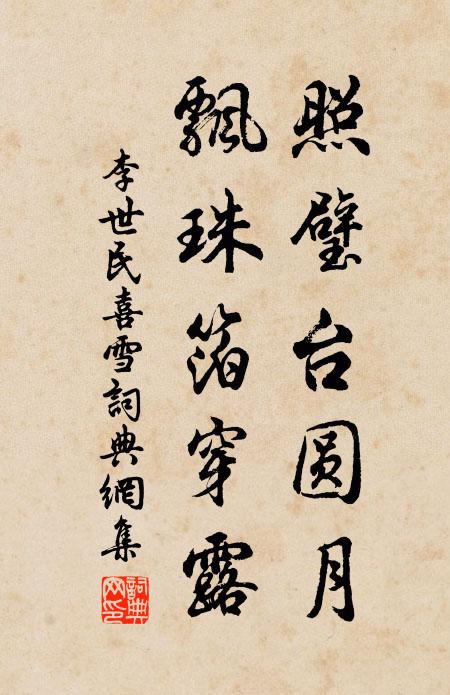 照璧台圆月
飄珠箔穿露
李世民喜雪詞典網集
詞典
网印